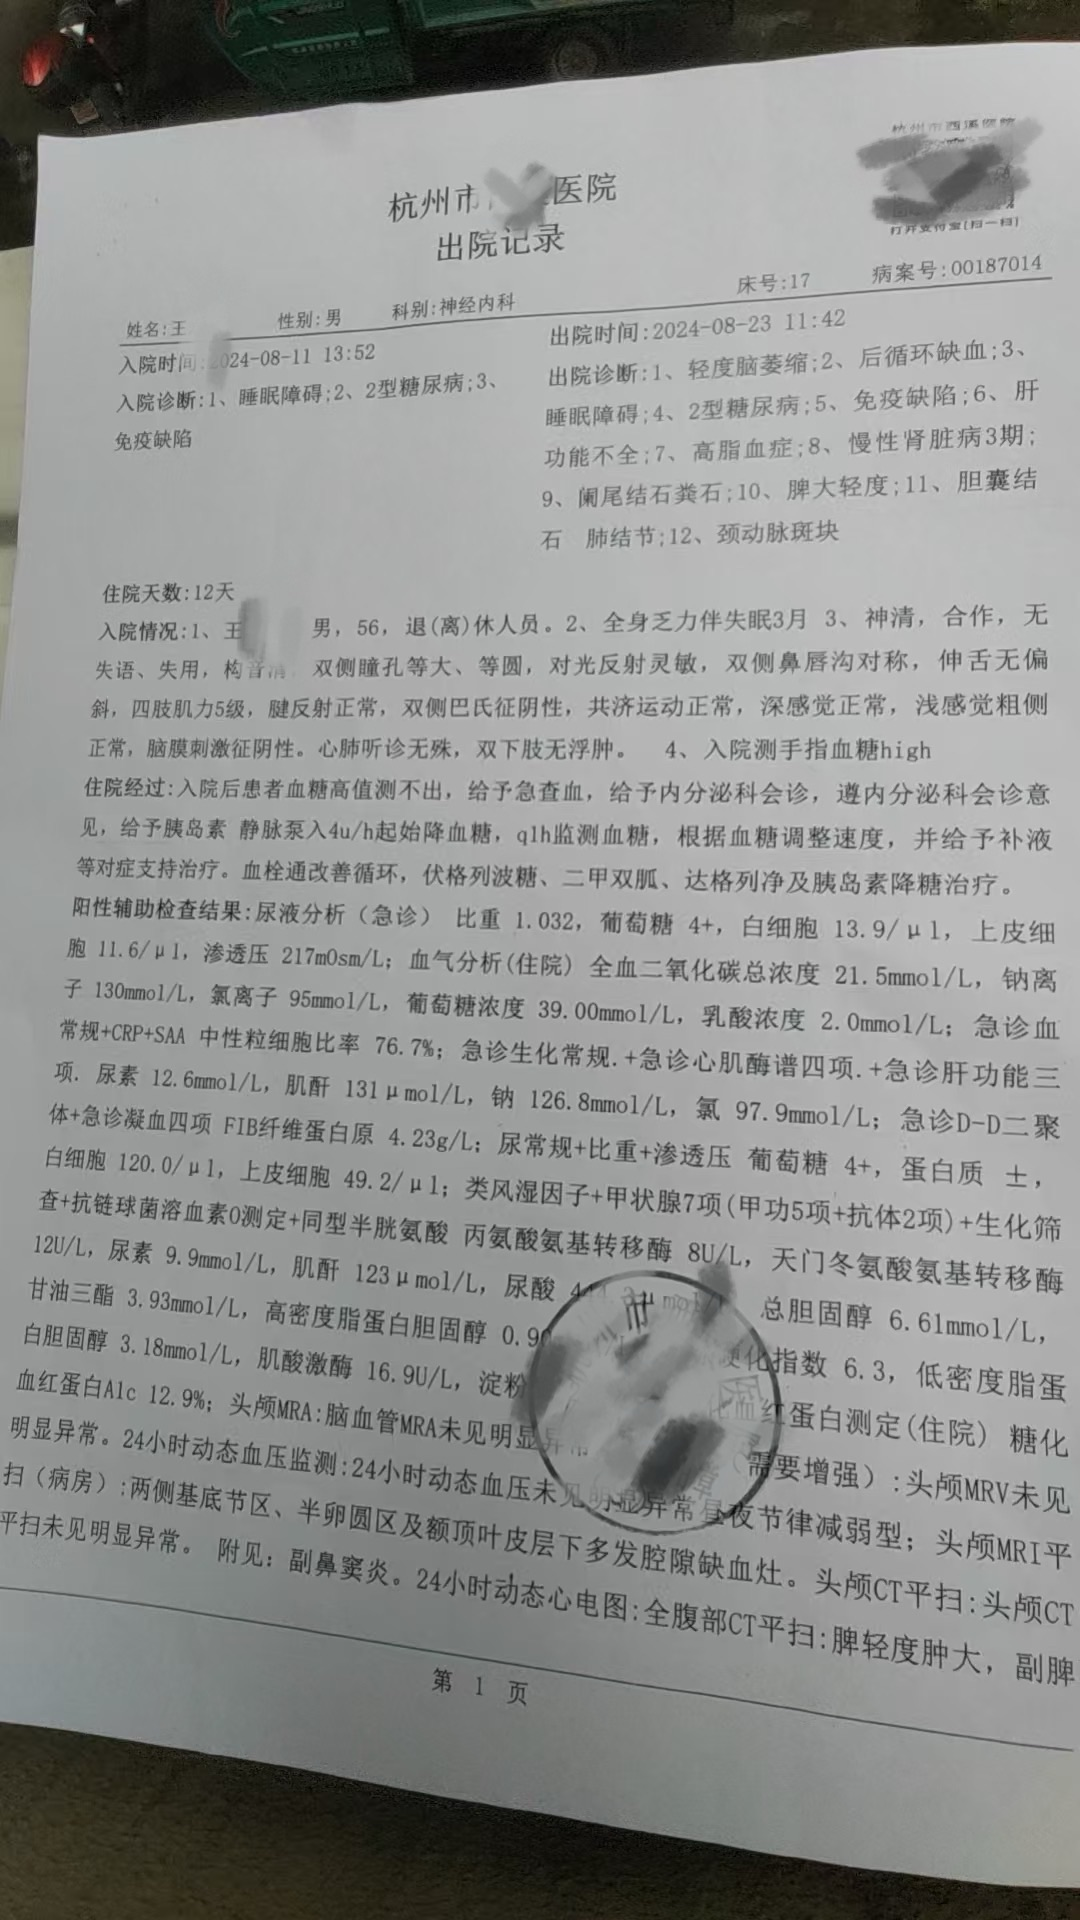 杭州市 医院
出院记录
打开支付宝[扫一扫]
姓名:王 性别:男 科别:神经内科 床号:17 病案号:00187014
入院时间: 2024-08-11 13:52
入院诊断:1、睡眠障碍;2、2型糖尿病;3、
免疫缺陷
出院时间:2024-08-23 11:42
出院诊断:1、轻度脑萎缩;2、后循环缺血;3、
睡眠障碍;4、2型糖尿病;5、免疫缺陷;6、肝
功能不全;7、高脂血症;8、慢性肾脏病3期;
9、阑尾结石粪石;10、脾大轻度;11、胆囊结
石 肺结节;12、颈动脉斑块
住院天数:12天
入院情况:1、王 男，56，退(离)休人员。2、全身乏力伴失眠3月 3、神清，合作，无
失语、失用，构音清 双侧瞳孔等大、等圆，对光反射灵敏，双侧鼻唇沟对称，伸舌无偏
斜，四肢肌力5级，腱反射正常，双侧巴氏征阴性，共济运动正常，深感觉正常，浅感觉粗侧
正常，脑膜刺激征阴性。心肺听诊无殊，双下肢无浮肿。 4、入院测手指血糖high
住院经过:入院后患者血糖高值测不出，给予急查血，给予内分泌科会诊，遵内分泌科会诊意
见，给予胰岛素 静脉泵入4u/h起始降血糖，q1h监测血糖，根据血糖调整速度，并给予补液
等对症支持治疗。血栓通改善循环，伏格列波糖、二甲双胍、达格列净及胰岛素降糖治疗。
阳性辅助检查结果:尿液分析（急诊） 比重 1.032，葡萄糖 4+，白细胞 13.9/μl，上皮细
胞 11.6/μl，渗透压 217mOsm/L；血气分析(住院) 全血二氧化碳总浓度 21.5mmol/L，钠离
子 130mmol/L，氯离子 95mmol/L，葡萄糖浓度 39.00mmol/L，乳酸浓度 2.0mmol/L；急诊血
常规+CRP+SAA 中性粒细胞比率 76.7%；急诊生化常规.+急诊心肌酶谱四项.+急诊肝功能三
项. 尿素 12.6mmol/L，肌酐 131μmol/L，钠 126.8mmol/L，氯 97.9mmol/L；急诊D-D二聚
体+急诊凝血四项 FIB纤维蛋白原 4.23g/L；尿常规+比重+渗透压 葡萄糖 4+，蛋白质 ±，
白细胞 120.0/μl，上皮细胞 49.2/μl；类风湿因子+甲状腺7项(甲功5项+抗体2项)+生化筛
查+抗链球菌溶血素O测定+同型半胱氨酸 丙氨酸氨基转移酶 8U/L，天门冬氨酸氨基转移酶
12U/L，尿素 9.9mmol/L，肌酐 123μmol/L，尿酸 总胆固醇 6.61mmol/L，
甘油三酯 3.93mmol/L，高密度脂蛋白胆固醇 0.90 硬化指数 6.3，低密度脂蛋
白胆固醇 3.18mmol/L，肌酸激酶 16.9U/L，淀粉 红蛋白测定(住院) 糖化
血红蛋白A1c 12.9%；头颅MRA:脑血管MRA未见明显异常 需要增强）:头颅MRV未见
明显异常。24小时动态血压监测:24小时动态血压未见明显异常昼夜节律减弱型；头颅MRI平
扫（病房）:两侧基底节区、半卵圆区及额顶叶皮层下多发腔隙缺血灶。头颅CT平扫:头颅CT
平扫未见明显异常。 附见：副鼻窦炎。24小时动态心电图:全腹部CT平扫:脾轻度肿大，副脾
第 1 页